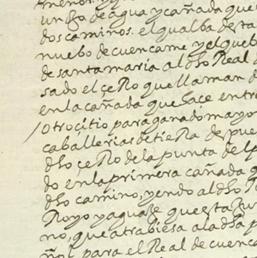 un Rio de agua y cañada que
dos caminos. el qual ba desta
nuebo de cuencame y el que b
de santa maria al dho Real d
sado el çeRo que llaman d
en la cañada que haçe entr
otro çitio para ganado mayo
caballerias de tieRa de pue
dho çeRo de la punta del p
do en la primera cañada q
dho camino, yendo al dho R
Royo y agua que esta
no, que atrabiesa a la d
para el Real de cuenca